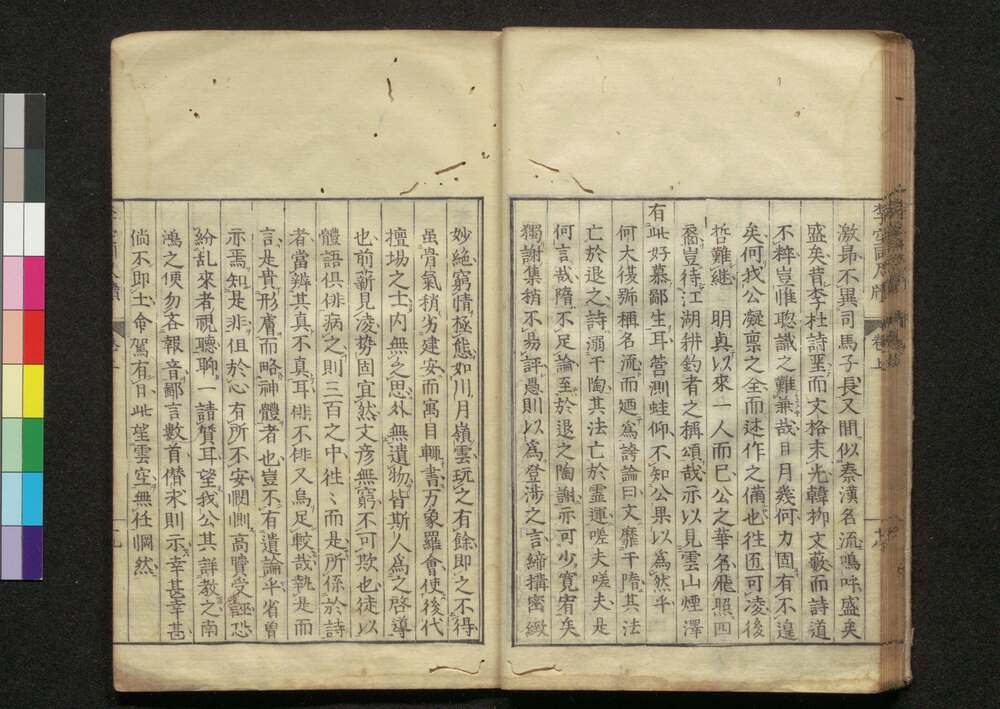 激昻不異司馬子長又間似秦漢名流嗚呼盛矣
盛矣昔李杜詩聖而文格未光韓柳文藪而詩道
不粹豈惟聰識之難兼哉日月幾何力固有不遑
矣何我公凝稟之全而述作之備也徃匝可凌後
哲難繼明眞以來一人而已公之華名飛照四
裔豈待江湖耕釣者之稱頌哉示以見雲山煙澤
有此好慕鄙生耳管測蛙仰不知公果以爲然乎
何大復號稱名流而廼爲誇論曰文靡于隋其法
亡於退之詩溺于陶其法亡於靈運嗟夫嗟夫是
何言哉隋不足論至於退之陶謝示可少寬宥矣
獨謝集稍不易評愚則以爲登涉之言締搆密緻
妙絶窮情極態如川月嶺雲玩之有餘即之不得
虽骨氣稍劣建安而寓目輙書万象羅會使後代
擅塲之士内無之思外無遺物皆斯人爲之啓導
也前薪見凌勢固宜然文彦無窮不可欺也徒以
體語俱俳病之則三百之中徃〻而是所係於詩
者當辨其真不真耳俳不俳又烏足較哉執是而
言是貴形膚而略神體者也豈不有遺論乎省曾
示焉知是非但於心有所不安惘惘高贖受誣恐
紛乱來者視聽聊一請質耳望我公其詳教之南
鴻之便勿吝報音鄙言數首僭求則示幸甚幸甚
倘不即土命駕有日此望雲空無任惘然
卷上